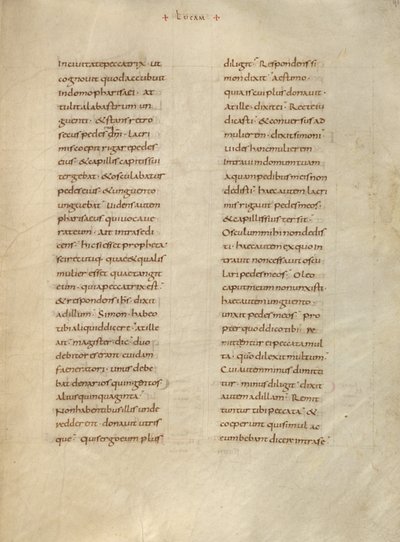 + LUCAM +
Incivitatepeccatrix ut
cognovit quodaccubuit
Indomopharisaei · at
tulit alabastrum un
guenti · &stans retro
secuspedes lacri
misco epit rigare pedes
eius · &capillis capitissui
tergebat · &osculabatur
pedes eius · &unguento
unguebat videns autem
phariseus quivocave
rateum · ait intrasedi
cens hic si esset propheta
sciret utiq; quae&qualis
mulier esset quaetangit
eum · quiapeccatrix est
&respondens ihs dixit
adillum · Simon habeo
tibi aliquid dicere · atille
ait magister dic · duo
debitores erant cuidam
faeneratori · unus debe
bat denarios quingentos
alius quinquaginta ·
Nonhabentibus illis unde
redderent · donavit utris
que · quis ergo eum plus
diligit · Respondens si
mon dixit · aestimo ·
quia is cui plus donavit ·
atille · dixit ei · Recte iu
dicasti · &conversus ad
mulierem · dixit simoni
vides hanc mulierem
Intravi in domum tuam
aquam pedibus meis non
dedisti · haec autem lacri
mis rigavit pedes meos ·
&capillis suis tersit ·
Osculum mihi non dedis
ti · haec autem ex quo in
travit non cessavit oscu
lari pedes meos · Oleo
caput meum non unxisti ·
haec autem unguento ·
unxit pedes meos · pro
pter quod dico tibi · re
mittentur ei peccata mul
ta · quo dilexit multum ·
Cui autem minus dimitti
tur · minus diligit · dixit
autem ad illam · Remit
tuntur tibi peccata · &
coeperunt qui simul ac
cumbebant dicere intrase